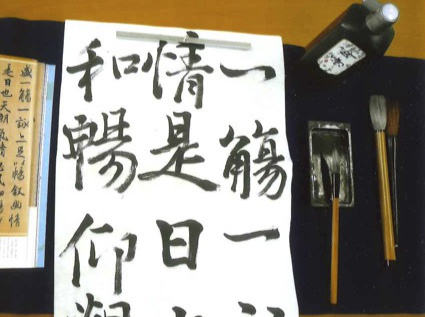 一觴一
情是日
和暢仰
盛一觴一詠亦足以暢叙幽情
是日也天朗氣清